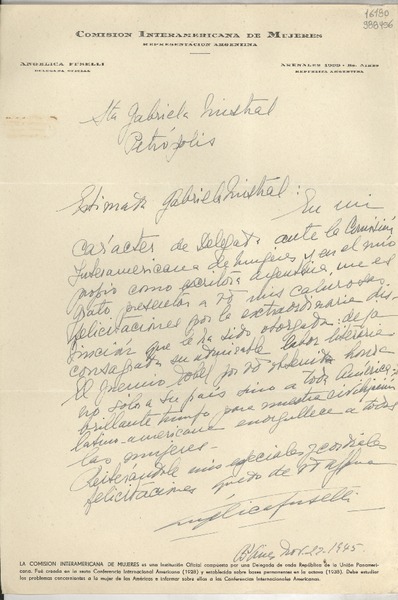 16130
988496
COMISION INTERAMERICANA DE MUJERES
REPRESENTACION ARGENTINA
ANGELICA FUSELLI
DELEGADA OFICIAL
ARENALES 1969 - Bs. AIRES
REPUBLICA ARGENTINA
Sta Gabriela Mistral
Petrópolis
Estimada Gabriela Mistral:
En mi
carácter de Delegada ante la Comisión
Interamericana de Mujeres y en el mío
propio como escritora argentina, me es
grato presentar a Vd mis calurosas
felicitaciones por la extraordinaria dis-
tinción que le ha sido otorgada: deja
consagrada su admirable labor literaria
El Premio Nobel por Vd obtenido honra
no sólo a su país sino a toda América y
brillante triunfo para nuestra civilización
latino-americana enorgullece a todas
las mujeres.
Reiterándole mis especiales y cordiales
felicitaciones quedo de Vd affma
Angélica Fuselli
B. Aires Nov. 27. 1945.
LA COMISION INTERAMERICANA DE MUJERES es una Institución Oficial compuesta por una Delegada de cada República de la Unión Panameri-
cana. Fué creada en la sexta Conferencia Internacional Americana (1928) y establecida sobre bases permanentes en la octava (1938). Debe estudiar
los problemas concernientes a la mujer de las Américas e informar sobre ellos a las Conferencias Internacionales Americanas.